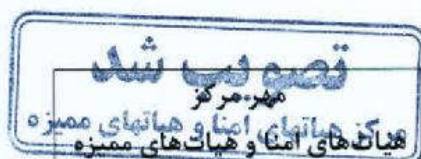 تصویب شد
مهر مرکز
مرکز هیاتهای امنا و هیاتهای ممیزه
هیات‌های امنا و هیات‌های ممیزه